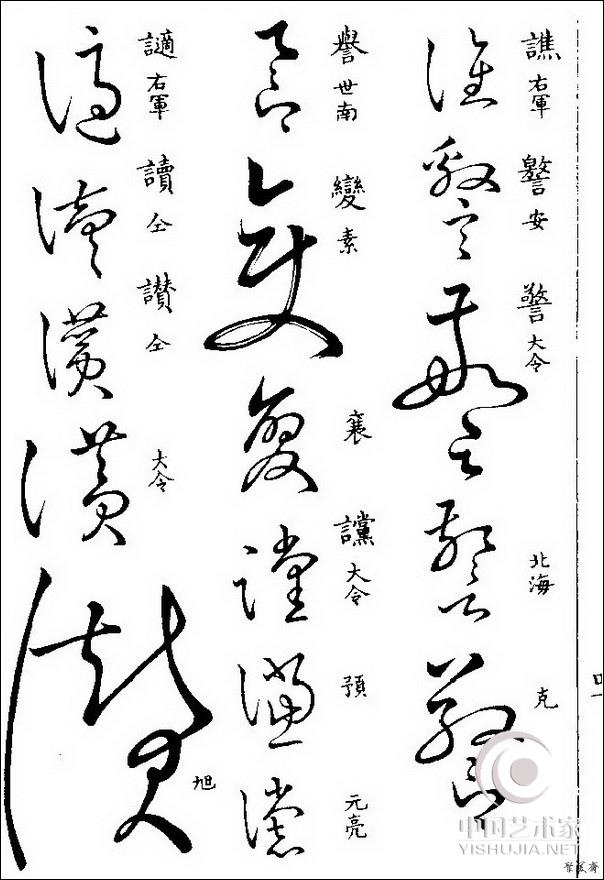 譙 右軍
安
警 大令
北海
克
譽 世南
變 素
襄
讜 大令
預
元亮
讁 右軍
讀 仝
讚 仝
大令
旭
中国艺术家
YISHUJIA.NET